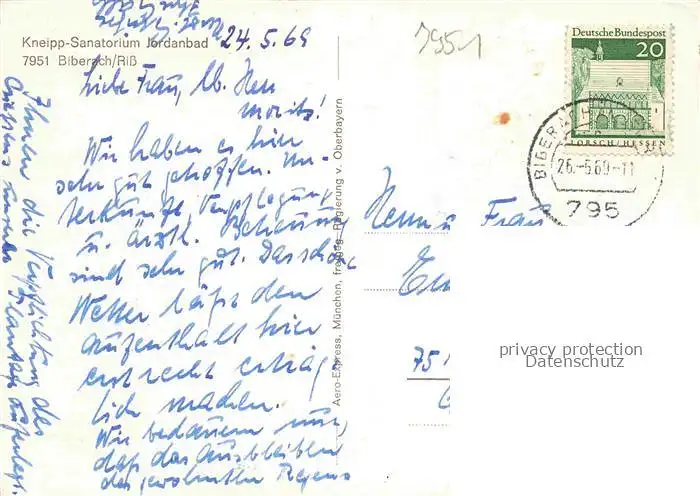 24.5.69
Kneipp-Sanatorium Jordanbad
7951 Biberach/Riß
Liebe Frau, lb. Herr
Moritz!
Wir haben es hier
sehr gut getroffen. Un-
terkunft, Verpflegung
u. ärztl. Betreuung
sind sehr gut. Das schöne
Wetter läßt den
Aufenthalt hier
erst recht erträg-
lich machen.
Wir bedauern nur,
daß das Ausbleiben
des gewohnten Regens
Ihnen die Verpflichtung des
Gießens unserer
Aero-Express, München, freigeg. Regierung v. Oberbayern
7951
Deutsche Bundespost
20
LORSCH/HESSEN
BIBERACH
26.-5.69-11
795
Herrn u. Frau
75
privacy protection
Datenschutz